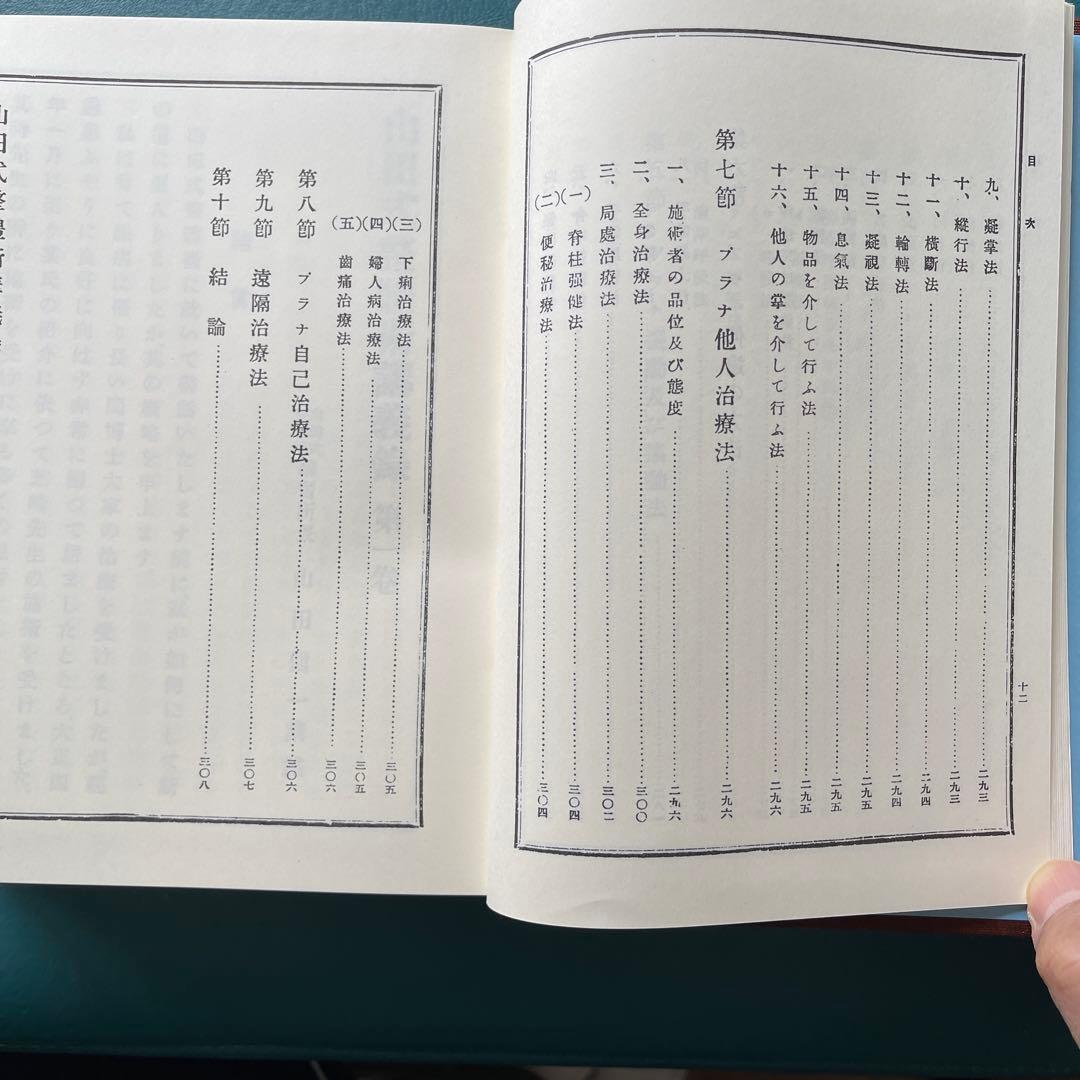 目次
十二
九、凝掌法……二九三
十、縱行法……二九三
十一、橫斷法……二九四
十二、輪轉法……二九四
十三、凝視法……二九五
十四、息氣法……二九五
十五、物品を介して行ふ法……二九五
十六、他人の掌を介して行ふ法……二九六
第七節 プラナ他人治療法……二九六
一、施術者の品位及び態度……二九六
二、全身治療法……三〇〇
三、局處治療法……三〇二
(一)脊柱强健法……三〇四
(二)便秘治療法……三〇四
(三)下痢治療法……三〇五
(四)婦人病治療法……三〇五
(五)齒痛治療法……三〇六
第八節 プラナ自己治療法……三〇六
第九節 遠隔治療法……三〇七
第十節 結論……三〇八